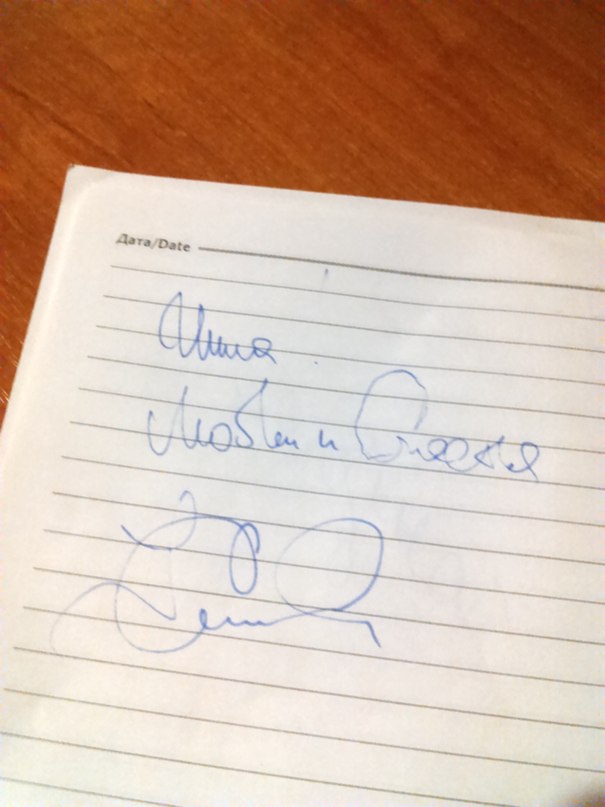 Дата/Date
Инна
Любви и Счастья